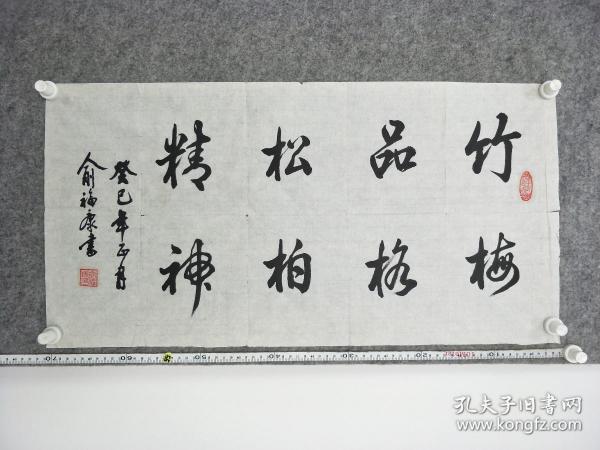 竹梅
品格
松柏
精神
癸巳年正月
俞福康书
孔夫子旧书网
www.kongfz.com